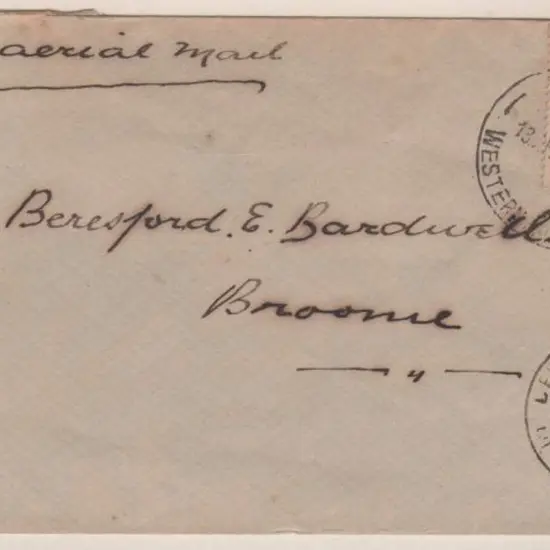 aerial Mail
Beresford. E. Bardwell
Broome
— " —
13.
WESTERN